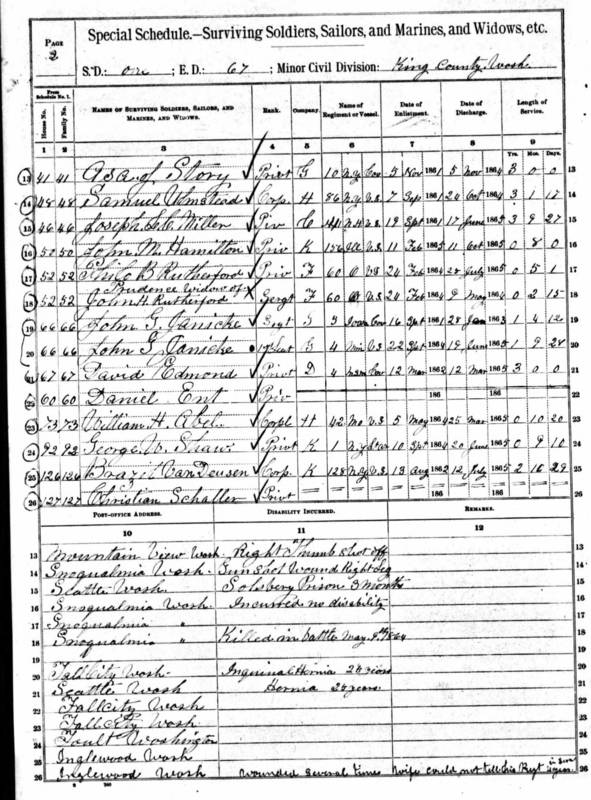 PAGE 2
Special Schedule.—Surviving Soldiers, Sailors, and Marines, and Widows, etc.
S.D.: one ; E.D.: 67 ; Minor Civil Division: King County. Wash.
From Schedule No. 1.
House No. Family No. NAMES OF SURVIVING SOLDIERS, SAILORS, AND MARINES, AND WIDOWS. Rank. Company. Name of Regiment or Vessel. Date of Enlistment. Date of Discharge. Length of Service.
Yrs. Mos. Days.
1 2 3 4 5 6 7 8 9
13 41 41 Asa Story Privt G 10 N.Y. Cav 5 Nov 1861 5 Nov 1864 3 0 0 13
14 48 48 Samuel Corp H 86 N.Y. V.S. 7 Sept 1861 24 Oct 1864 3 1 17 14
15 46 46 Joseph Miller Priv C N.H. V.S. 19 Sept 1861 17 June 1865 3 9 27 15
16 50 50 John M. Hamilton Priv K 156 Ill V.S. 11 Feb 1865 11 Oct 1865 0 8 0 16
17 52 52 Philo B Rutherford Priv F 60 O V.S 24 Feb 1864 28 July 1865 0 5 1 17
Prudence Widow of
18 52 52 John H. Rutherford Sergt F 60 V.S 24 Feb 1864 9 May 1864 0 2 15 18
19 66 66 John G. Janicke Sergt 3 Cav 16 Sept 1861 28 1863 1 4 12 19
20 66 66 John G. Janicke 4 Min V.S 22 Sept 1864 19 June 1865 1 9 28 20
21 67 67 David Edmond Privt D 4 Cav 12 Mar 1862 12 Mar 1865 3 0 0 21
22 60 60 Daniel Ent Priv 186 186 22
23 73 73 William H. Abel Corpl H 42 Mo V.S. 5 May 1864 25 Mar 1865 0 10 20 23
24 92 92 George W. Shaw Privt K 1 N.Y. 10 Sept 1864 20 June 1865 0 9 10 24
25 126 126 Brazil VanDeusen Corp. K 128 N.Y. V.S. 13 Aug 1862 12 July 1865 2 29 25
26 127 127 Christian Schaller Privt 186 186 26
POST-OFFICE ADDRESS. DISABILITY INCURRED. REMARKS.
10 11 12
13 Mountain View Wash Right Thumb shot off 13
14 Snoqualmia Wash. Gunshot Wound Right Leg 14
15 Seattle Wash. Solsbery Prison 3 months 15
16 Snoqualmia Wash Incurred no disability 16
17 Snoqualmia " 17
18 Snoqualmia " Killed in battle May 9th 1864 18
19 19
20 Fall City Wash. Inguinal Hernia 24 years 20
21 Seattle Wash Hernia 24 years 21
22 Fall City Wash 22
23 Fall City Wash 23
24 Toult Washington 24
25 Inglewood Wash 25
26 Inglewood Wash wounded several times Wife could not tell his Regt 26